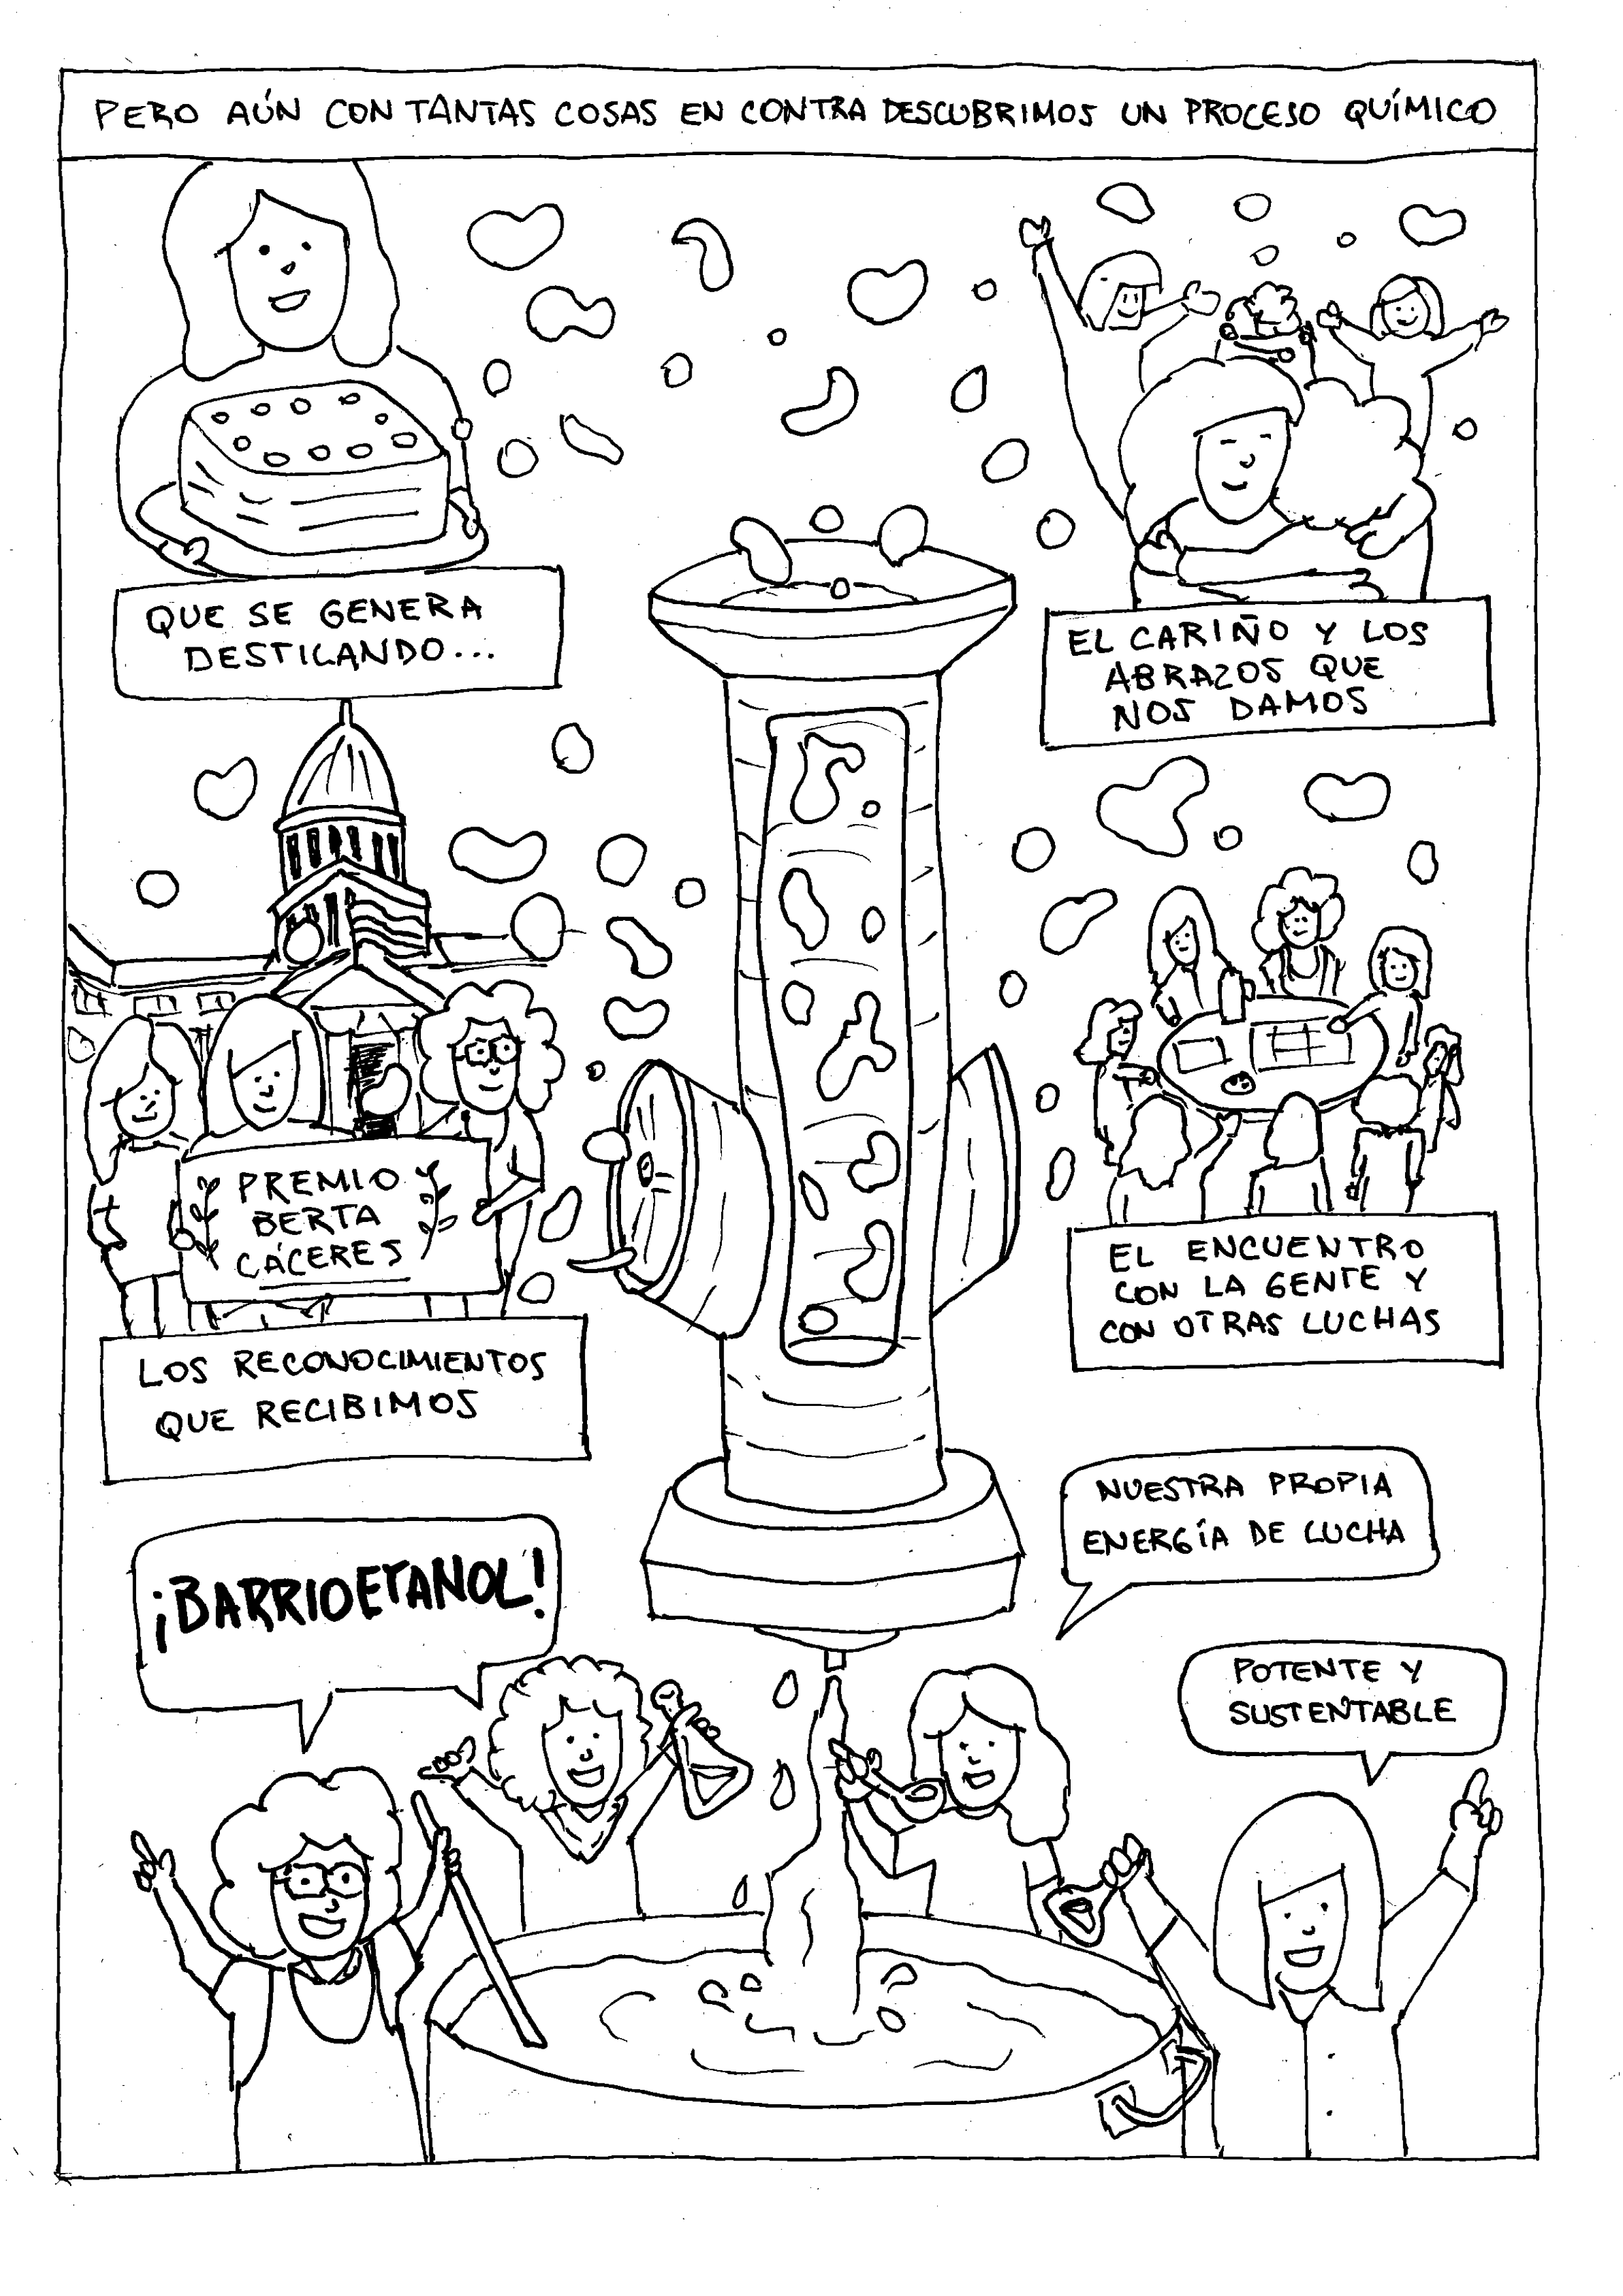 PERO AÚN CON TANTAS COSAS EN CONTRA DESCUBRIMOS UN PROCESO QUÍMICO
QUE SE GENERA
DESTILANDO...
EL CARIÑO Y LOS
ABRAZOS QUE
NOS DAMOS
PREMIO
BERTA
CÁCERES
LOS RECONOCIMIENTOS
QUE RECIBIMOS
EL ENCUENTRO
CON LA GENTE Y
CON OTRAS LUCHAS
¡BARRIOETANOL!
NUESTRA PROPIA
ENERGÍA DE LUCHA
POTENTE Y
SUSTENTABLE